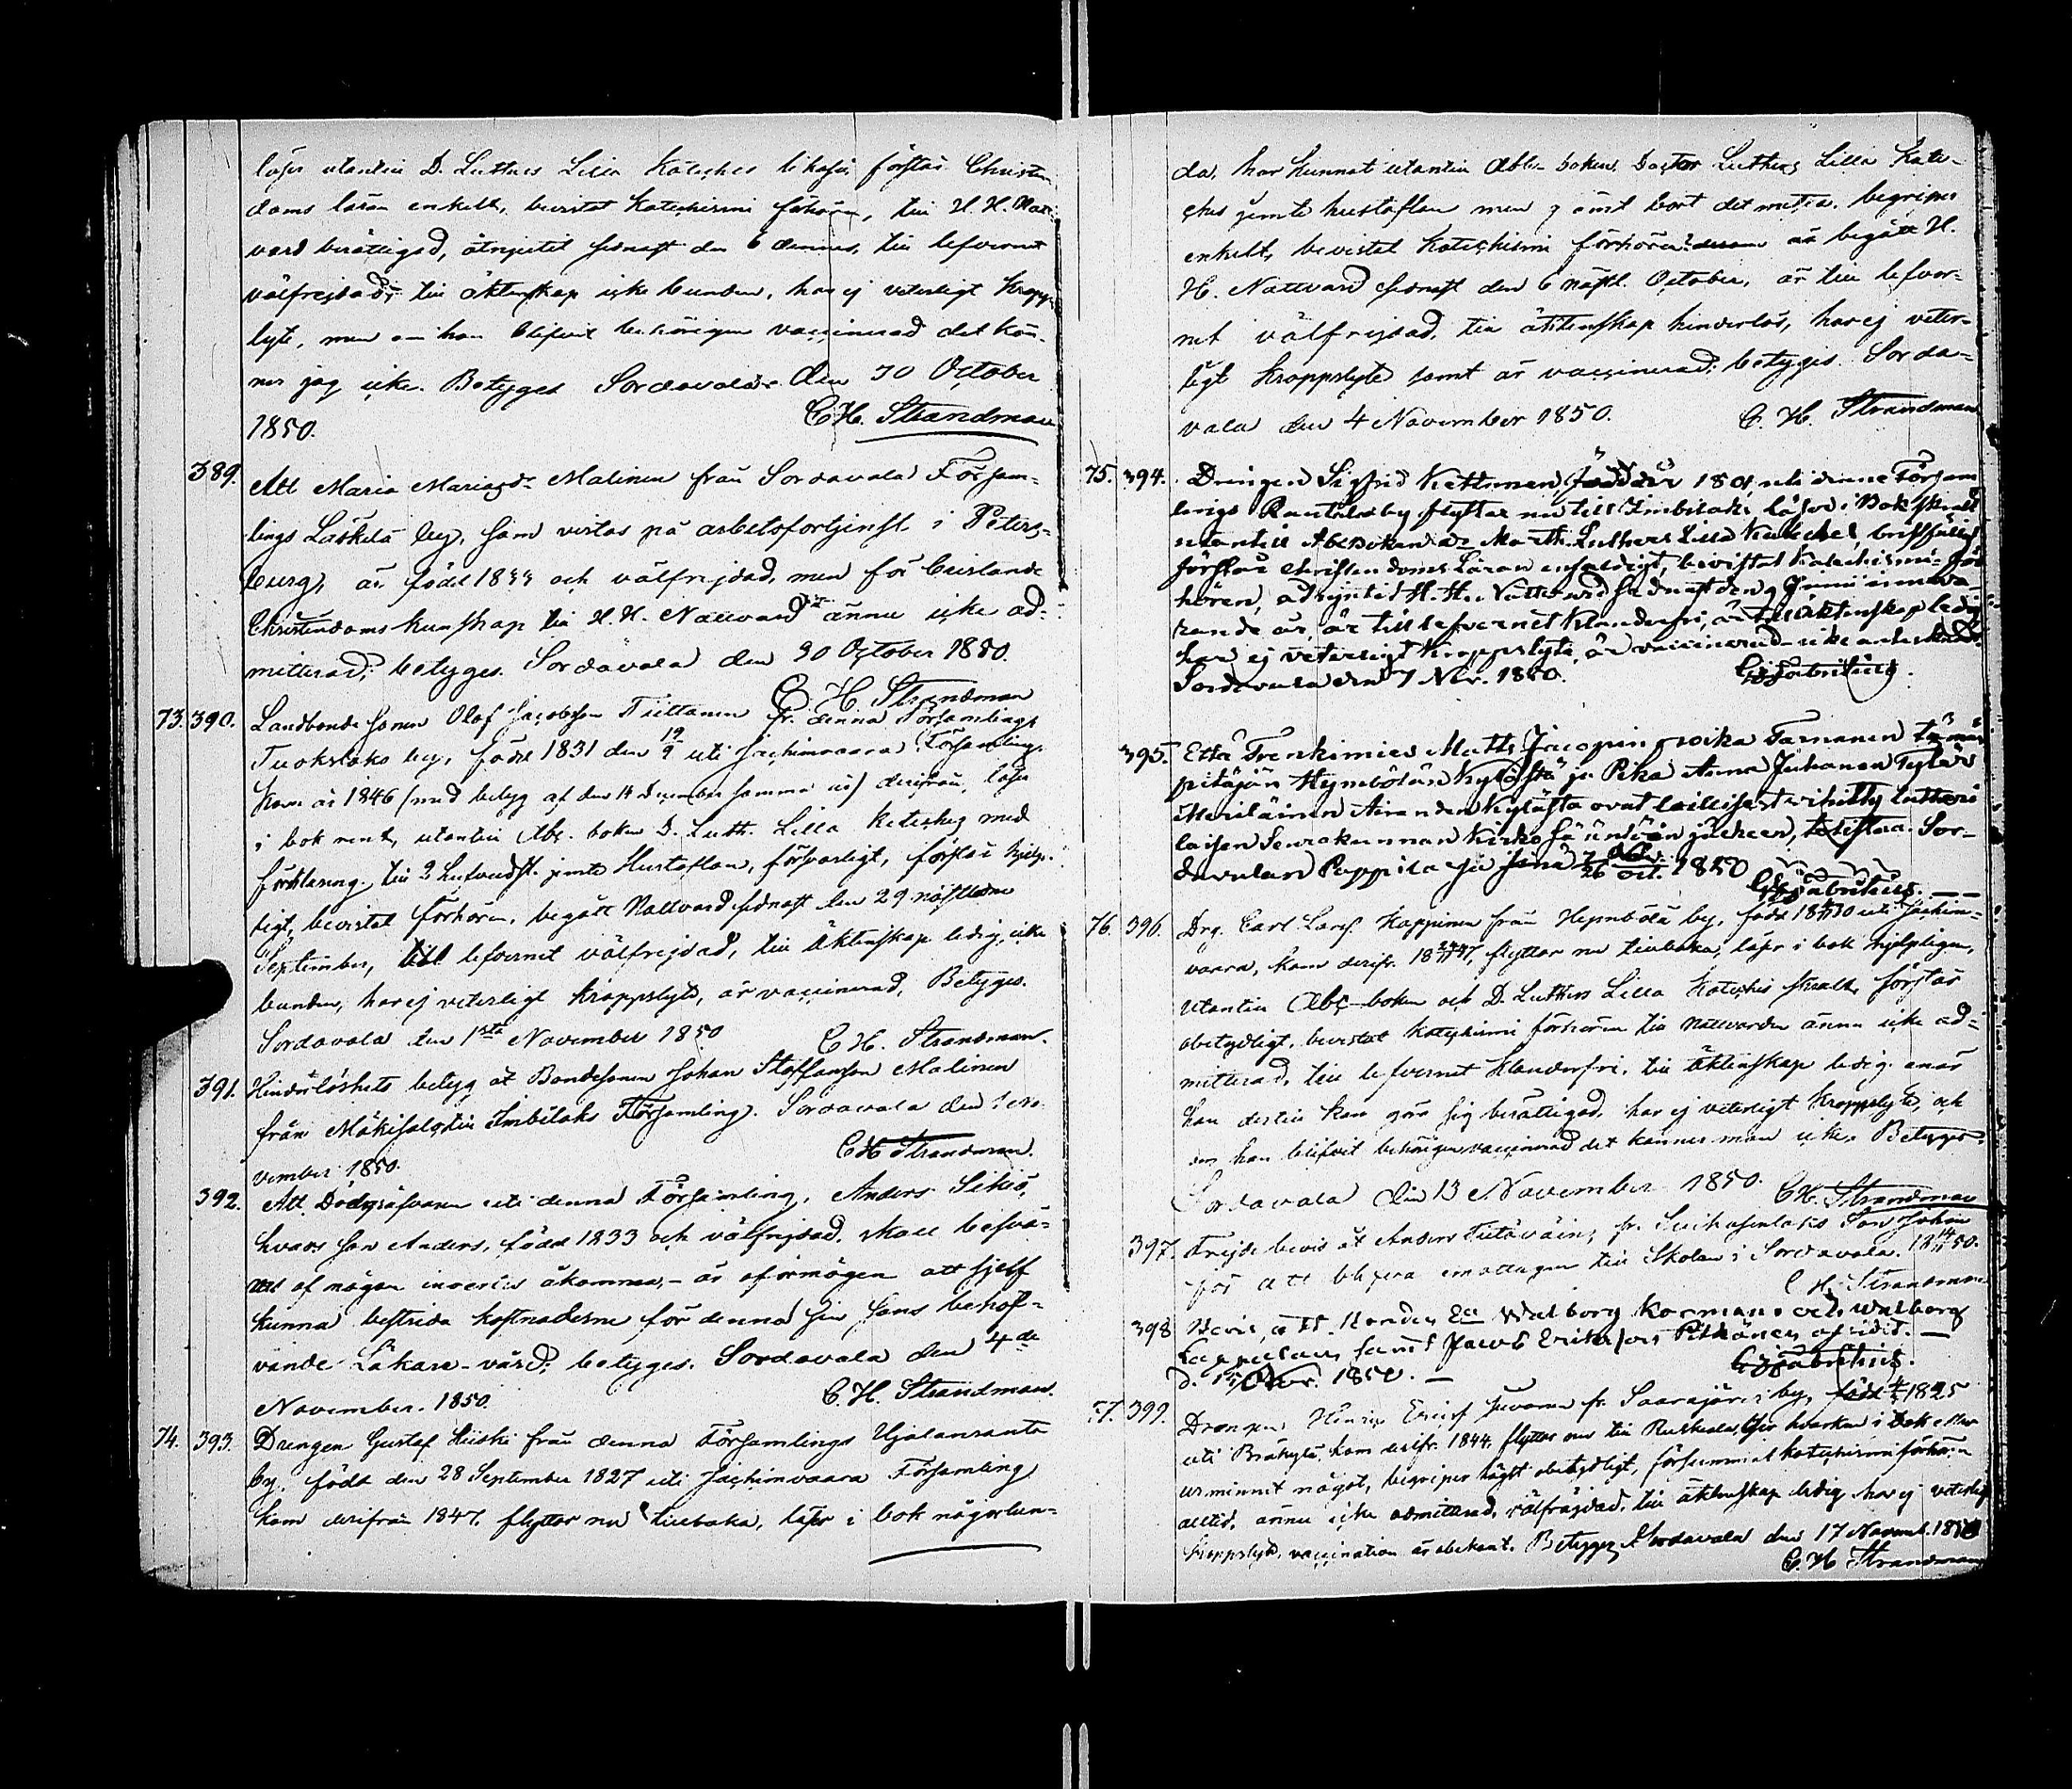 läser utantill D. Luthers Lilla Kateches likaså, förstår Christen
doms läran enkelt, bevistat Katechismi förhören, till H. H. Natt-
vard berättigad, åtnjutit sednast den 6 dennes, till lefvernet
välfrejdad, till äktenskap icke bunden, har ej veterligt Kropps
lyte, men om han blifvit behörigen vaccinerad det kän-
ner jag icke. Betyges Sordavala den 30 October
1850. C H. Strandman
389. Att Maria Mariasdr Malinen från Sordavala Försam-
lings Läskelä by, som vistas på arbetsfortjenst i Peters-
burg, är född 1833 och välfrejdad, men för bristande
Christendoms kunskap till H. H. Nattvard ännu icke ad-
mitterad; betyges. Sordavala den 30 October 1850.
C H. Strandman
73. 390. Landbonde sonen Olof Jacobsson Tiittanen fr. denna Församlings
Tuokslaks by, född 1831 den 19/9 uti Jachimvaara Församling.
Kom år 1846 (med betyg af den 14 December samma år) derifrån, läser
i bok rent, utantill Abc. boken D. Luth. Lilla Kateches med
förklaring till 2 hufvudst. jemte Hustaflan, försvarligt, förstår hjelp-
ligt, bevistat förhören, begått Nattvard sednast den 29 nästledne
September, till lefvernet välfrejdad, till äktenskap ledig, icke
bunden, har ej veterligt Kroppslyte, är vaccinerad, Betyges.
Sordavala den 1sta November 1850 C H. Strandman.
391. Hinderlöshets betyg åt Bondesonen Johan Staffansson Malinen
från Mäkisalo, till Imbilaks Församling. Sordavala den 1 No-
vember 1850. C H Strandman.
392. Att Dödgräfvaren uti denna Församling, Anders Sikiö,
hvars son Anders, född 1833 och välfrejdad, skall besvä-
ras af någon invertes åkomma, - är oförmögen att sjelf
kunna bestrida kostnaderne för denna sin sons behöf-
vande Läkare-vård; betyges. Sordavala den 4de
November. 1850. C. H. Strandman.
74. 393. Drengen Gustaf Huiski från denna Församlings Hjalansanta
by, född den 28 September 1827 uti Jachimvaara Församling
kom derifrån 1847. flyttar nu tillbaka, läser i bok någorlun-
da, har kunnat utantill Abc- boken, Doctor Luthers Lilla Kate-
ches jemte hustaflan men glömt bort det mesta. begriper
enkelt, bevistat Katechismi förhören, är begått H.
H. Nattvard sednast den 6 nästl. October, är till lefver-
net välfrejdad, till äktenskap hinderlös, har ej veter-
ligt Kroppslyte samt är vaccinerad; betyges. Sorda-
vala den 4 November 1850. C. H. Strandman
75. 394. Drengen Sigfrid Kettunen född år 1801, uti denne Försam
lings Rantalaby flyttar nu till Imbilaks läser i Bok skralt
utantill Abc Boken o. Mart. Luthers Lilla Kateches, bristfälligt
förstår Christendoms Läran enfaldigt, bevistat Katechismi-för
hören, åtnjutit H. H. Nattvard sednast den 9 Junii inneva
rande år, är till lefvernet klanderfri, är till Äktenskap ledig
har ej veterligt Kroppslyte, är vaccinerad icke anteknadt.
Sordavala den 7 Nov. 1850. Fabritius.
395. Että Trenkimies Matts Jacopin poika Tarnanen tämän
pitäjän Hymbölän Kylästä ja Pika Anna Juhanan Tytär
Meriläinen Airanden Kylästä ovat laillisest vihitty Lutheri
laisen Seurakunnan Kirko säändöin jälkeen, todistaa. Sor-
davalan Pappila ja 7 Nov./26 Oct. 1850 Fabritius.
76. 396. Drg. Carl Larss. Kappinen från Hymbölä by, född 1830 uti Jachim-
vaara, kom derifr. 1847, flyttar nu tillbaka, läser i bok hjelpligen,
utantill Abc-boken och D. Luthers Lilla Kateches skralt, förstår
obetydligt, bevistat Katechismi förhören till Nattvarden ännu icke ad-
mitterad, till lefvernet klanderfri, till äktenskap ledig enär
han dertill kan göra sig berättigad, har ej veterligt Kroppslyte, och
om han blifvit behörigen vaccinerad det känner man icke. Betyges.
Sordavala den 13 November 1850. C H. Strandman
397. Frejde bevis åt Anders Tiitäväins fr. Suikasenlaks Son Johan
för att blifva emottagen till Skolan i Sordavala. 18 14/11 50.
C H. Strandman
398 Bevis, att Bonden Walborg Kormano och Walborg
Lappalan, samt Jacob Eriksson Pitkänen aflidit. —
d. 15 Nov. 1850. — Fabritius.
77. 399. Drengen Henric Ericss. Juvonen fr. Saarajärvi by, född 1825
uti Bräkylä, kom derifr. 1844, flyttar nu till Ruskeala, läser hvarken i bok eller
ur minnet något, begriper högst obetydligt, försummat katechismi förhören
alltid, ännu icke admitterad, välfrejdad, till äktenskap ledig har ej veterligt
Kroppslyte, vaccination är obekant. Betyges Sordavala den 17 Novemb. 1850
C. H Strandman